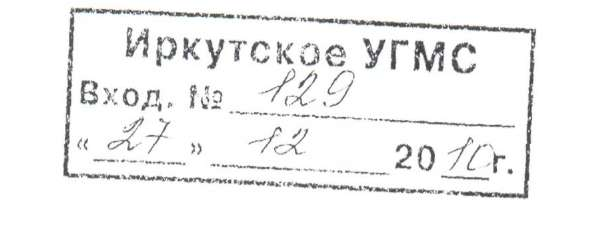 Иркутское УГМС
Вход. № 129
« 27 » 12 2010 г.